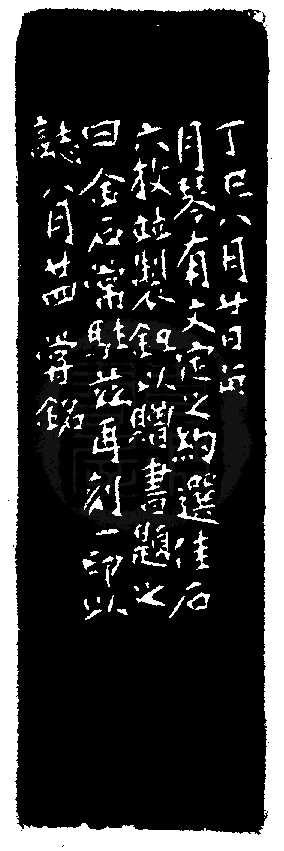 丁巳八月廿日
月琴有文定之約選佳石
六枚並製鈕以贈書題之
曰金石常駐茲再刻一印以
誌八月廿四銘